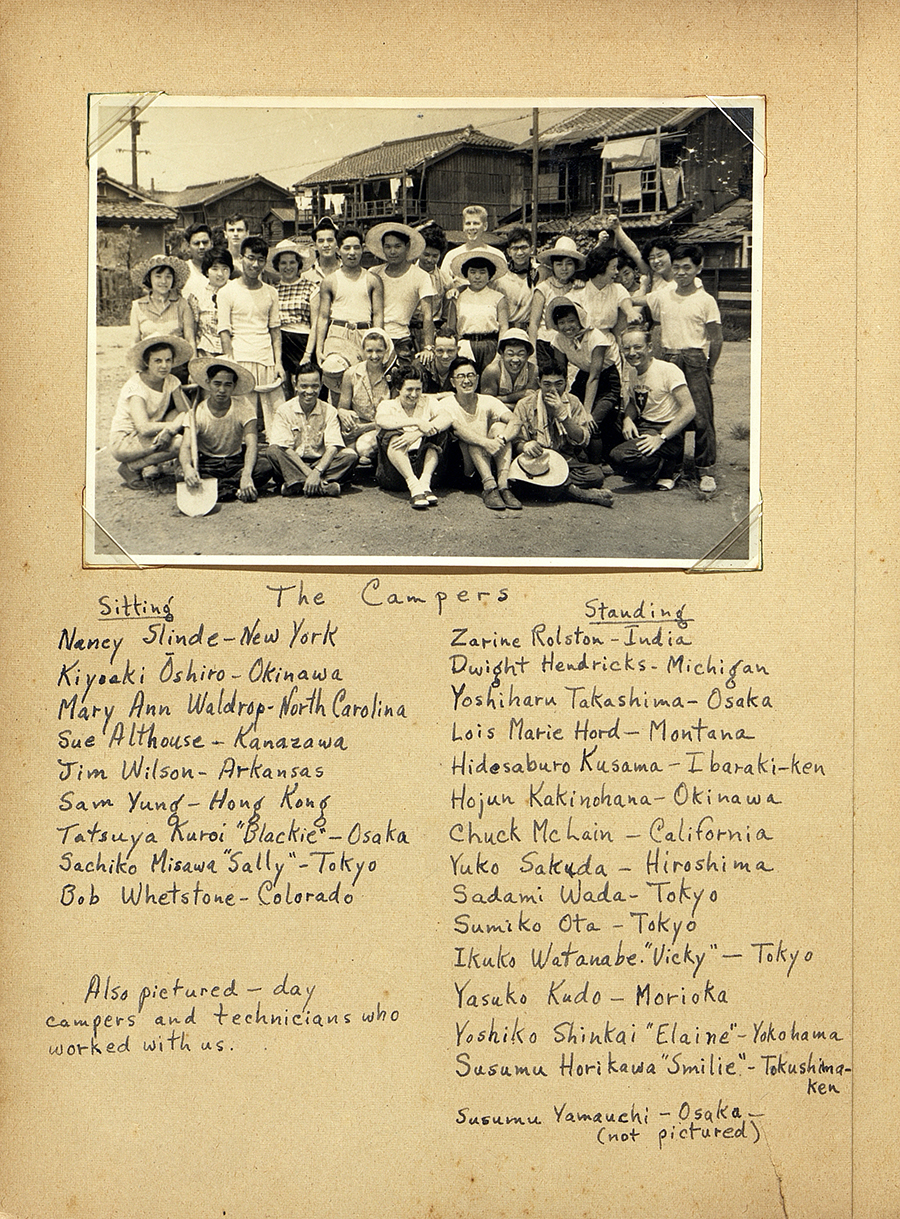 The Campers
Sitting
Nancy Slinde - New York
Kiyoaki Ōshiro - Okinawa
Mary Ann Waldrop - North Carolina
Sue Althouse - Kanazawa
Jim Wilson - Arkansas
Sam Yung - Hong Kong
Tatsuya Kuroi "Blackie" - Osaka
Sachiko Misawa "Sally" - Tokyo
Bob Whetstone - Colorado
Also pictured - day
campers and technicians who
worked with us.
Standing
Zarine Rolston - India
Dwight Hendricks - Michigan
Yoshiharu Takashima - Osaka
Lois Marie Hord - Montana
Hidesaburo Kusama - Ibaraki-ken
Hojun Kakinohana - Okinawa
Chuck McLain - California
Yuko Sakuda - Hiroshima
Sadami Wada - Tokyo
Sumiko Ota - Tokyo
Ikuko Watanabe "Vicky" - Tokyo
Yasuko Kudo - Morioka
Yoshiko Shinkai "Elaine" - Yokohama
Susumu Horikawa "Smilie" - Tokushima-
ken
Susumu Yamauchi - Osaka -
(not pictured)